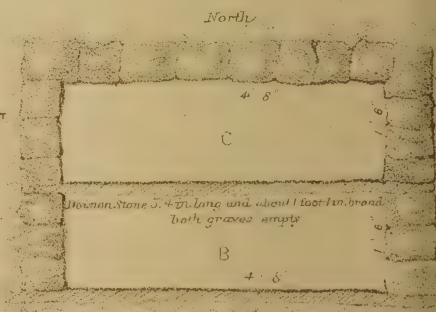 North
4 8
1 6
C
Division Stone 5.4 in. long and about 1 foot 1 in. broad
both graves empty
1 6
B
4 8